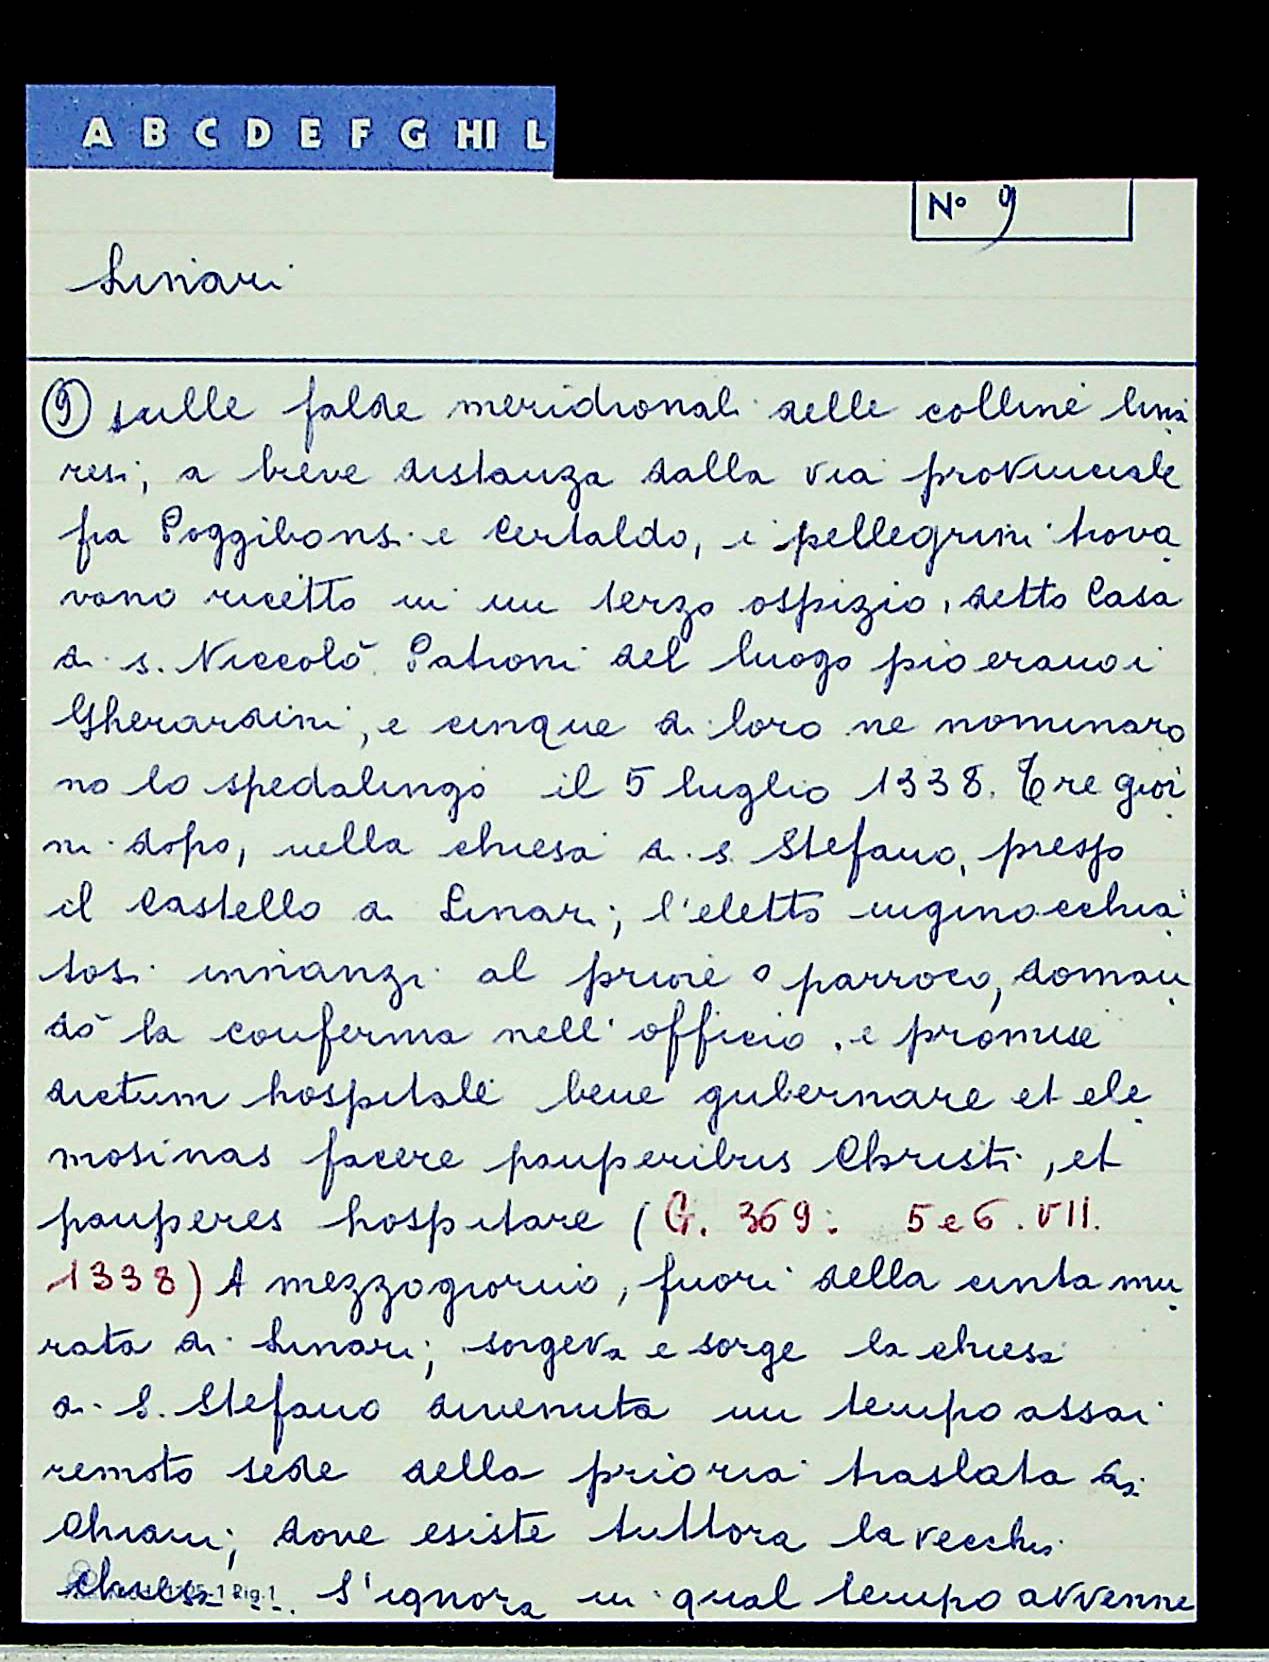 A B C D E F G HI L
N° 9
Linari
⑨ sulle falde meridionali delle colline lina
resi, a breve distanza dalla via provinciale
fra Poggibonsi e Certaldo, i pellegrini trova
vano ricetto in un terzo ospizio, detto Casa
di s. Niccolò. Patroni del luogo pio erano i
Gherardini, e cinque di loro ne nominaro
no lo spedalingo il 5 luglio 1338. Tre gior
ni dopo, nella chiesa di s. Stefano, presso
il Castello di Linari, l'eletto inginocchia
tosi innanzi al priore o parroco, doman
dò la conferma nell'officio, e promise
dictum hospitale bene gubernare et ele
mosinas facere pauperibus Christi, et
pauperes hospitare (G. 369: 5 e 6. VII.
1338) A mezzogiorno, fuori della cinta mu
rata di Linari, sorgeva e sorge la chiesa
di S. Stefano divenuta in tempo assai
remoto sede della prioria traslata da
Chiani, dove esiste tuttora la vecchi
chiesa. S'ignora in qual tempo avvenne
-1 Rig. 1